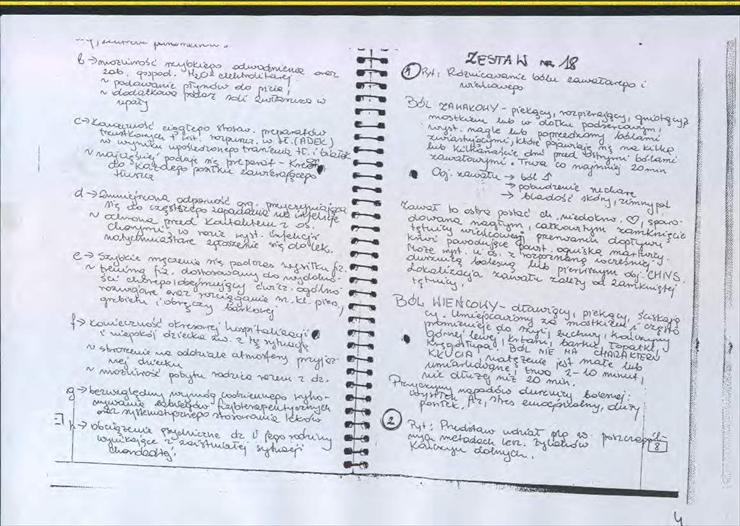 b → możliwość szybkiego odwodnienia oraz
zab. gospod. H2O elektrolitowej
~ podawanie płynów do picia,
~ dodatkowo podaż soli zwłaszcza w
upały
c → Konieczność ciągłego stosow. preparatów
trzustkowych + wit. rozpuszcz. w tł. (ADEK)
w wyniku upośledzonego trawienia tł. i białek
~ najczęściej podaje się preparat - Kreon
do każdego posiłku zawierającego
tłuszcz
d → Zmniejszona odporność org. przyczyniająca
się do częstszego zapadania na infekcje
~ ochrona przed kontaktem z os.
chorymi, w razie wyst. infekcji
natychmiastowe zgłoszenie się do lek.
e → Szybkie męczenie się podczas wysiłku fiz.
~ trening fiz. dostosowany do wydolno-
ści chorego obejmujący ćwicz. ogólno-
rozwojowe oraz rozciąganie m. kl. pier,
grzbietu i obręczy barkowej
f → konieczność okresowej hospitalizacji
i niepokój dziecka zw. z tą sytuacją
~ stworzenie na oddziale atmosfery przyjaz-
nej dziecku
~ możliwość pobytu rodzica razem z dz.
g → bezwzględny wymóg codziennego wyko-
nywania zabiegów fizjoterapeutycznych
oraz systematycznego stosowania leków
h → obciążenie psychiczne dz i jego rodziny
wynikające z zaistniałej sytuacji
chorobowej.
ZESTAW nr 18
1 Pyt: Różnicowanie bólu zawałowego i
wieńcowego
BÓL ZAWAŁOWY - piekący, rozpierający, gniotący za
mostkiem lub w dołku podsercowym,
wyst. nagle lub poprzedzony bólami
zwiastującymi, które pojawiają się na kilka
lub kilkanaście dni przed ostrymi bólami
zawałowymi. Trwa co najmniej 20 min
Obj. zawału → ból
→ pobudzenie ruchowe
→ bladość skóry, zimny pot
Zawał to ostra postać ch. niedokrw. ♡, spowo-
dowana nagłym, całkowitym zamknięciem
tętnicy wieńcowej przerwaniem dopływu
krwi powodujące powst. ogniska martwicy.
Może wyst. u os. z rozpoznaną wcześniej
dusznicą bolesną lub pierwszym obj. CHNS.
Lokalizacja zawału zależy od zamkniętej
tętnicy.
BÓL WIEŃCOWY - dławiący, piekący, ściskają-
cy. Umiejscowiony za mostkiem i często
promieniuje do szyi, żuchwy, kończyny
górnej lewej, krtani, barku, łopatki,
kręgosłupa. BÓL NIE MA CHARAKTERU
KŁUCIA, natężenie jest małe lub
umiarkowane, trwa 2-10 minut,
nie dłużej niż 20 min.
Przyczyny napadów dusznicy bolesnej:
wysiłek fiz, stres emocjonalny, duży
posiłek.
2 Pyt: Przedstaw udział plg w poszczegól-
nych metodach lecz. żylaków
kończyn dolnych.
8
4